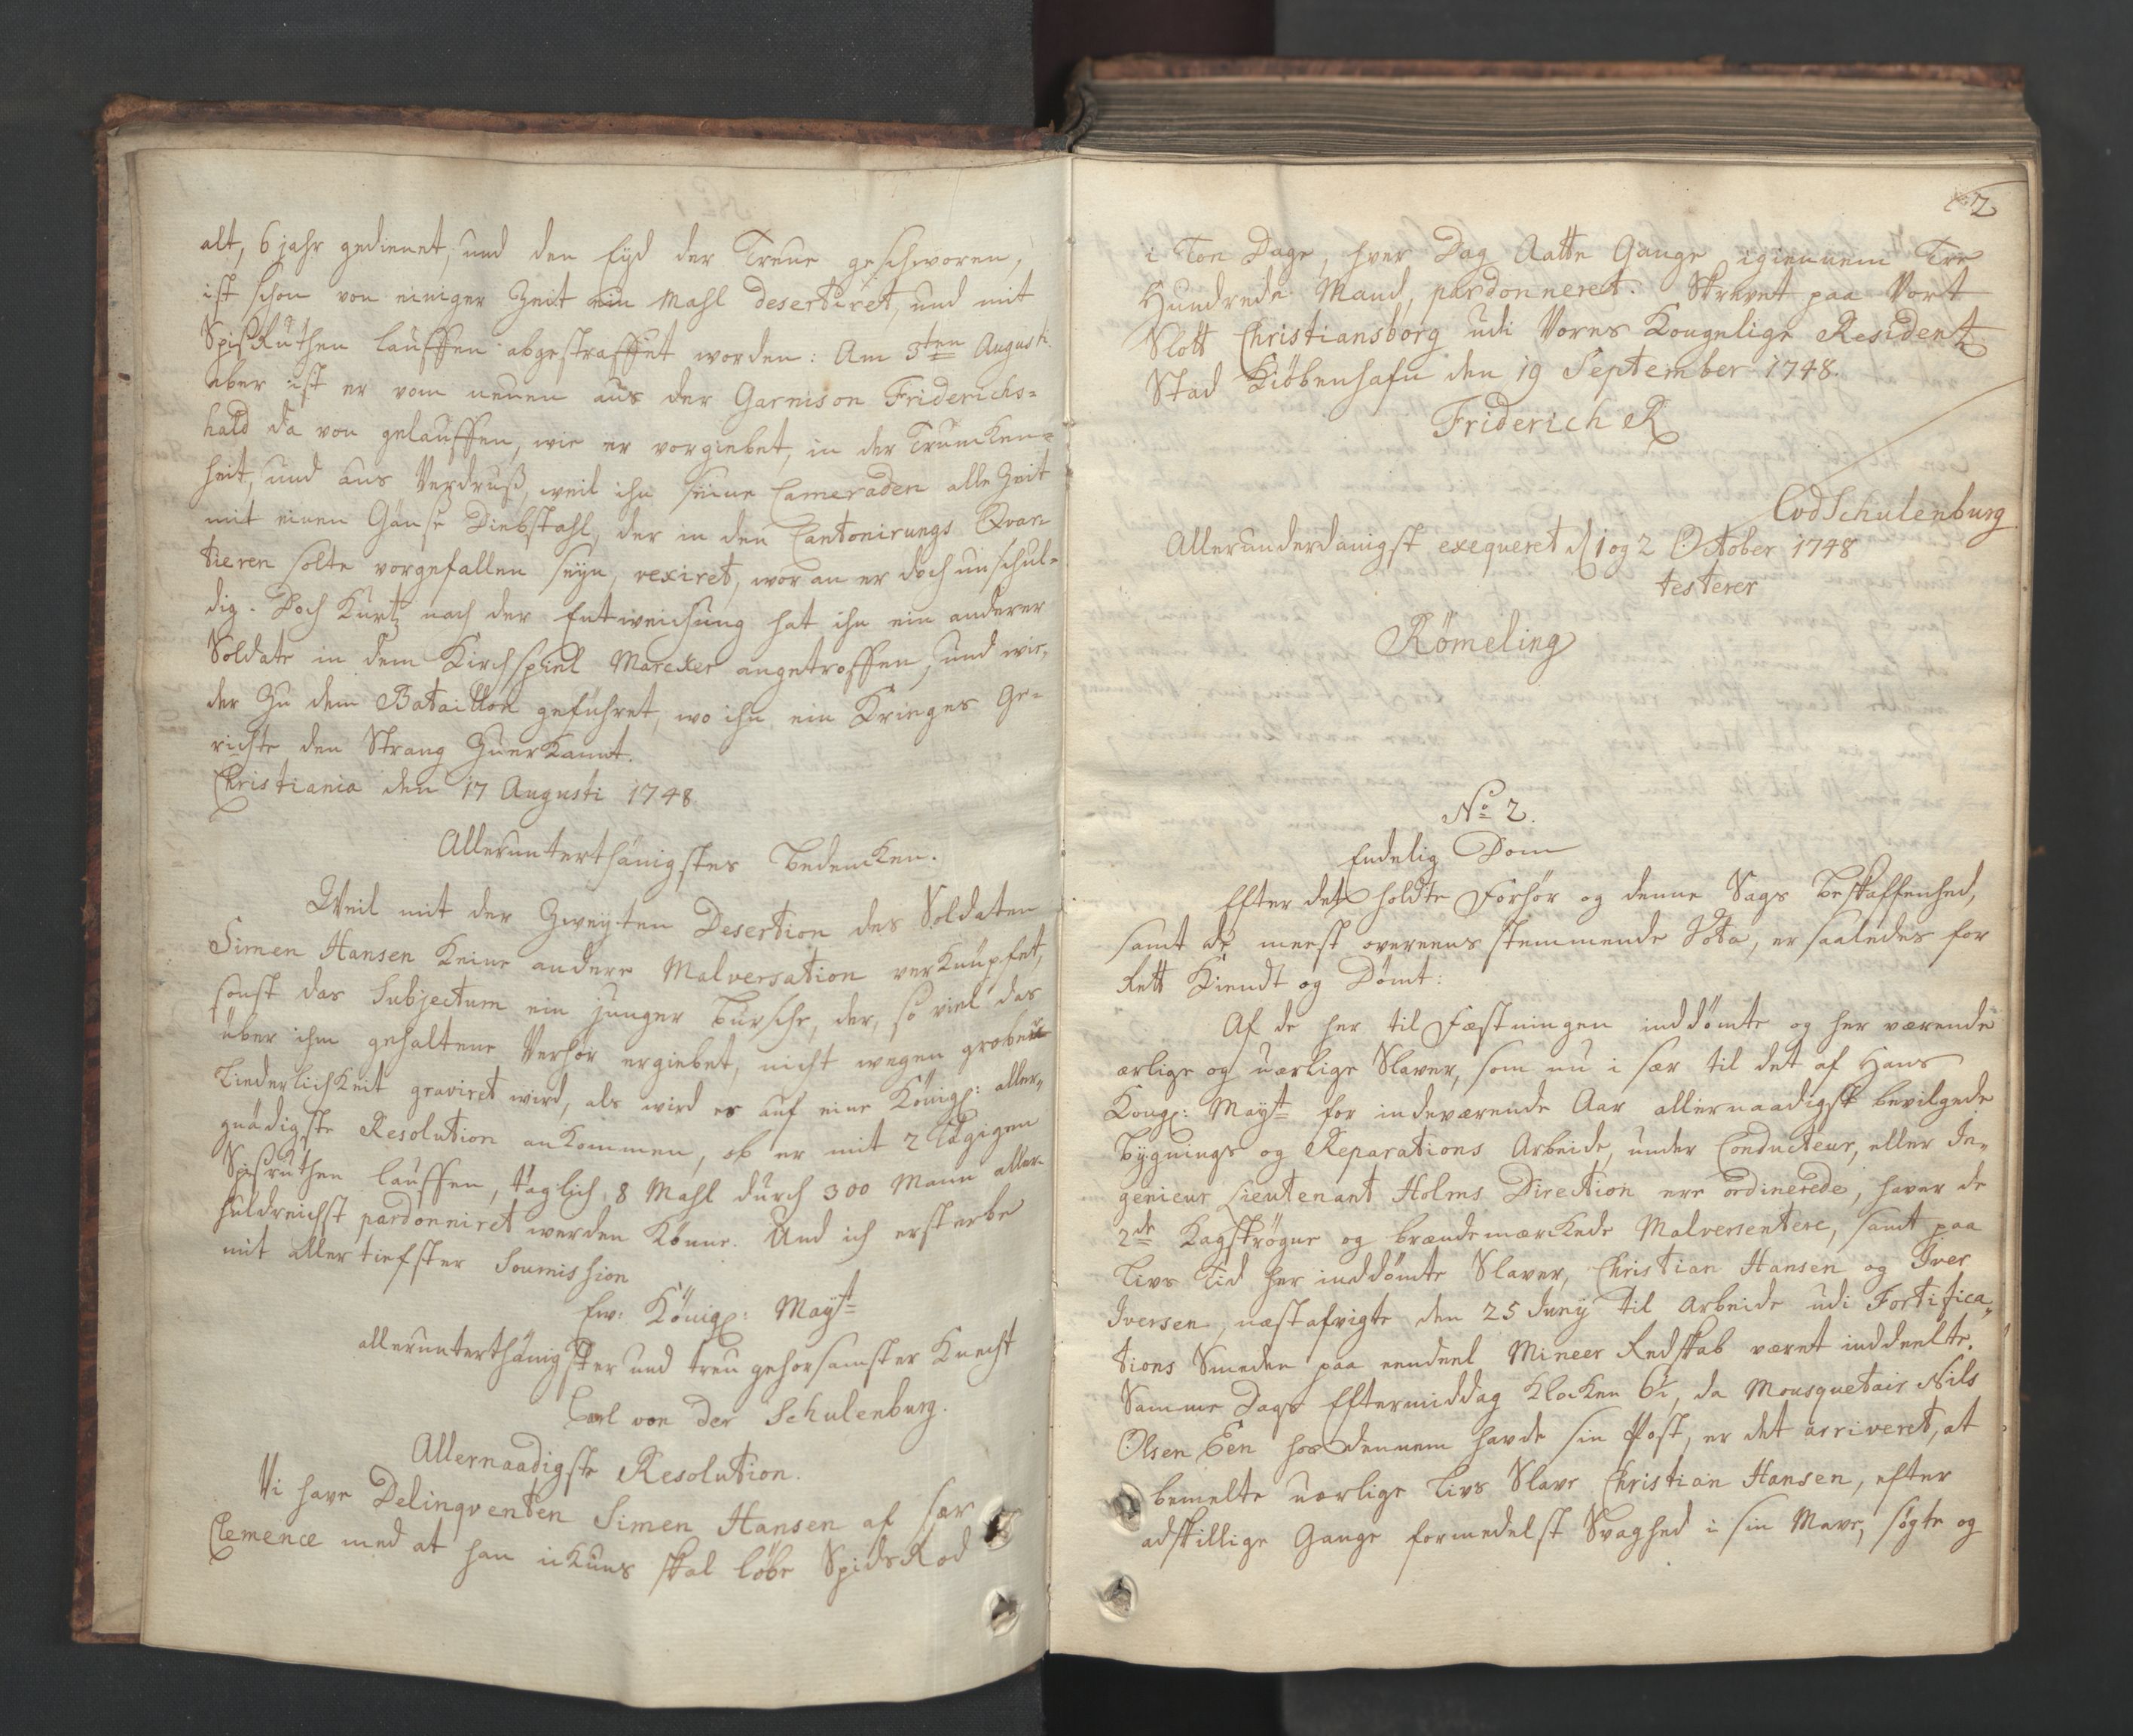 alt, 6 jahr gedienet, und den Eyd der Treue geschworen,
ist schon von einiger Zeit ein Mahl desertiret, und mit
Spißruthen lauffen abgestraffet worden: Am 3ten Augusti
aber ist er vom neuen aus der Garnison Friderichs=
hald da von gelauffen, wie er vorgiebet, in der Truncken=
heit, und aus Verdruß, weil ihn seine Cameraden alle Zeit
mit einen Gänse Diebstahl, der in den Cantonirungs Qvar
tieren solte vorgefallen seyn, vexiret, wor an er doch unschul=
dig. Doch kurtz nach der Entweichung hat ihn ein anderer
Soldate in dem Kirchspiel Marcker angetroffen, und wie,
der zu dem Bataillon geführet, wo ihn ein Krieges Ge=
richte den Strang zuerkannt.
Christiania den 17 Augusti 1748
Allerunterthänigstes Bedencken.
Weil mit der Zweyten Desertion des Soldaten
Simen Hansen keine andere Malversation verknüpfet,
sonst das Subjectum ein junger Bursche, der, so viel das
über ihm gehaltene Verhör ergiebet, nicht wegen grober
Liederlichkeit graviret wird, als wird es auf eine Königl: aller,
gnädigste Resolution ankommen, ob er mit 2 Tägigen
Spisruthen lauffen, täglich 8 Mahl durch 300 Mann aller
huldreichst pardonniret werden könne. Und ich ersterbe
mit aller tiefster Soumission
Ew: Königl: Mayt
allerunterthänigster und treu gehorsamster Knecht
Carl von der Schulenburg.
Allernaadigste Resolution.
Vi have Delinqventen Simen Hansen af sær
Clemence med at han ickuns skal løbe SpidsRod
2
i Toe Dage, hver Dag Aatte Gange igiennem Tre
Hundrede Mand, pardonneret. Skrevet paa Vort
Slott Christiansborg udi Vores Kongelige Residentz
Stad Kiøbenhafn den 19 September 1748.
Friderich R
CvdSchulenburg
Allerunderdanigst exeqveret d 1 og 2 October 1748
testerer
Rømeling
No 2.
Endelig Dom
Efter det holdte Forhør og denne Sags Beskaffenhed,
samt de meest overeens stemmende Vota, er saaledes for
Rett Kiendt og Dømt:
Af de her til Fæstningen inddømte og her værende
ærlige og uærlige Slaver, som nu i sær til det af Hans
Kongl: Mayt for indeværende Aar allernaadigst bevilgede
Bygnings og Reparations Arbeide, under Conducteur, eller In,
genieur Lieutenant Holms Direction ere ordinerede, haver de
2de Kagstrøgne og brændemærckede Malversentere, samt paa
Livs Tid her inddømte Slaver, Christian Hansen og Iver
Iversen, næstafvigte den 25 Juny til Arbeide udi Fortifica,
tions Smeden paa eendeel Mineer Redskab været inddeelte.
Samme Dags Eftermiddag Klocken 6, da Mousquetair Nils
Olsen Een hos dennem havde sin Post, er det arriveret, at
bemelte uærlige Livs Slave Christian Hansen, efter
adskillige Gange formedelst Svaghed i sin Mave, søgte og